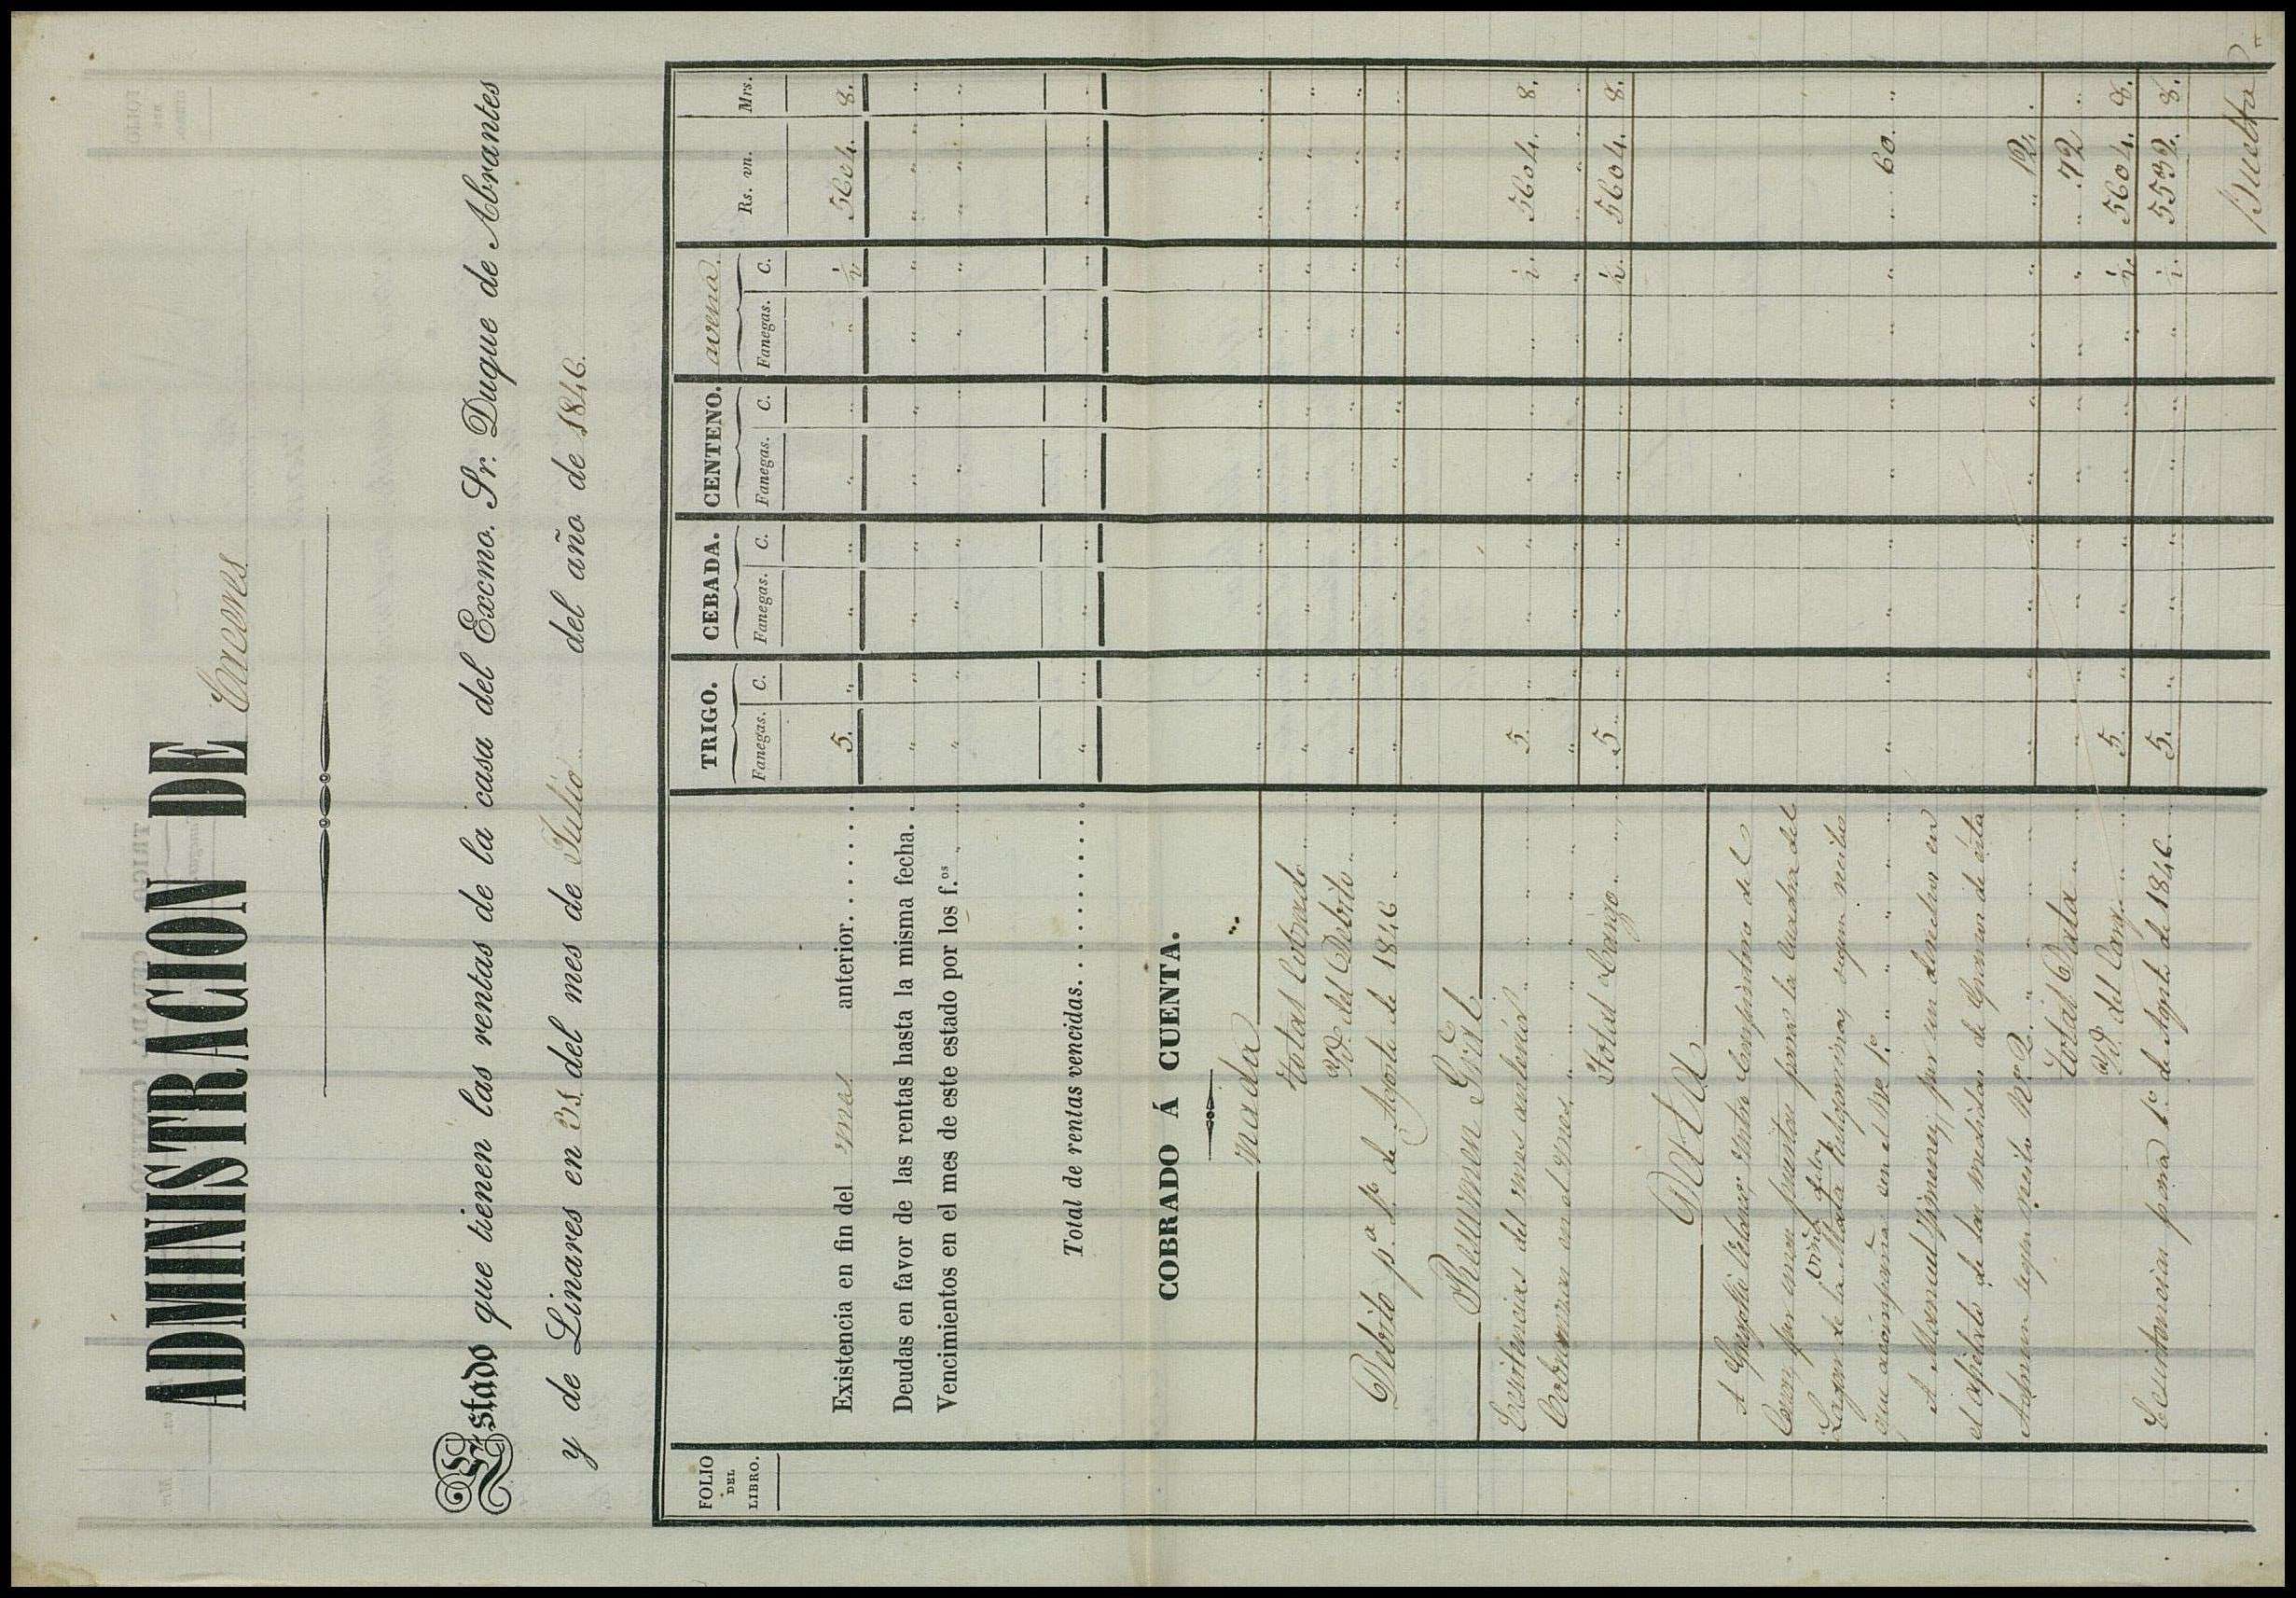 ADMINISTRACION DE Caceres
Estado que tienen las rentas de la casa del Excmo. Sr. Duque de Abrantes
y de Linares en 31 del mes de Julio del año de 1846.
FOLIO DEL LIBRO. TRIGO. CEBADA. CENTENO. avena.
Fanegas. C. Fanegas. C. Fanegas. C. Fanegas. C. Rs. vn. Mrs.
Existencia en fin del mes anterior. . . . . . . 5. " " " " " " ½ 5604. 8.
Deudas en favor de las rentas hasta la misma fecha. . " " " " " " " " " "
Vencimientos en el mes de este estado por los f.os " " " " " " " " " "
Total de rentas vencidas. . . . . . . . . . " " " " " " " " " "
COBRADO Á CUENTA.
nada
Total Cobrado " " " " " " " " " "
Yd. del Debito " " " " " " " " " "
Debito p.a 1.o de Agosto de 1846 " " " " " " " " " "
Resumen Gral.
Existencias del mes anterior 5. " " " " " " ½. 5604. 8.
Cobranzas en el mes " " " " " " " " " "
Total Cargo 5 " " " " " " ½. 5604. 8.
Data
A
por la
de la Mata segun recibo
que acompaña con el N.o 1.o " " " " " " " " 60. "
A Manuel Jimenez, por un
el de las medidas de de esta
segun recibo N.o 2. " " " " " " " " 12.
Total Data " " " " " " " " 72 "
Yd. del Cargo 5. " " " " " " ½. 5604. 8.
Existencias para 1.o de Agosto de 1846. 5. " " " " " " ½. 5532. 8.
Buelta